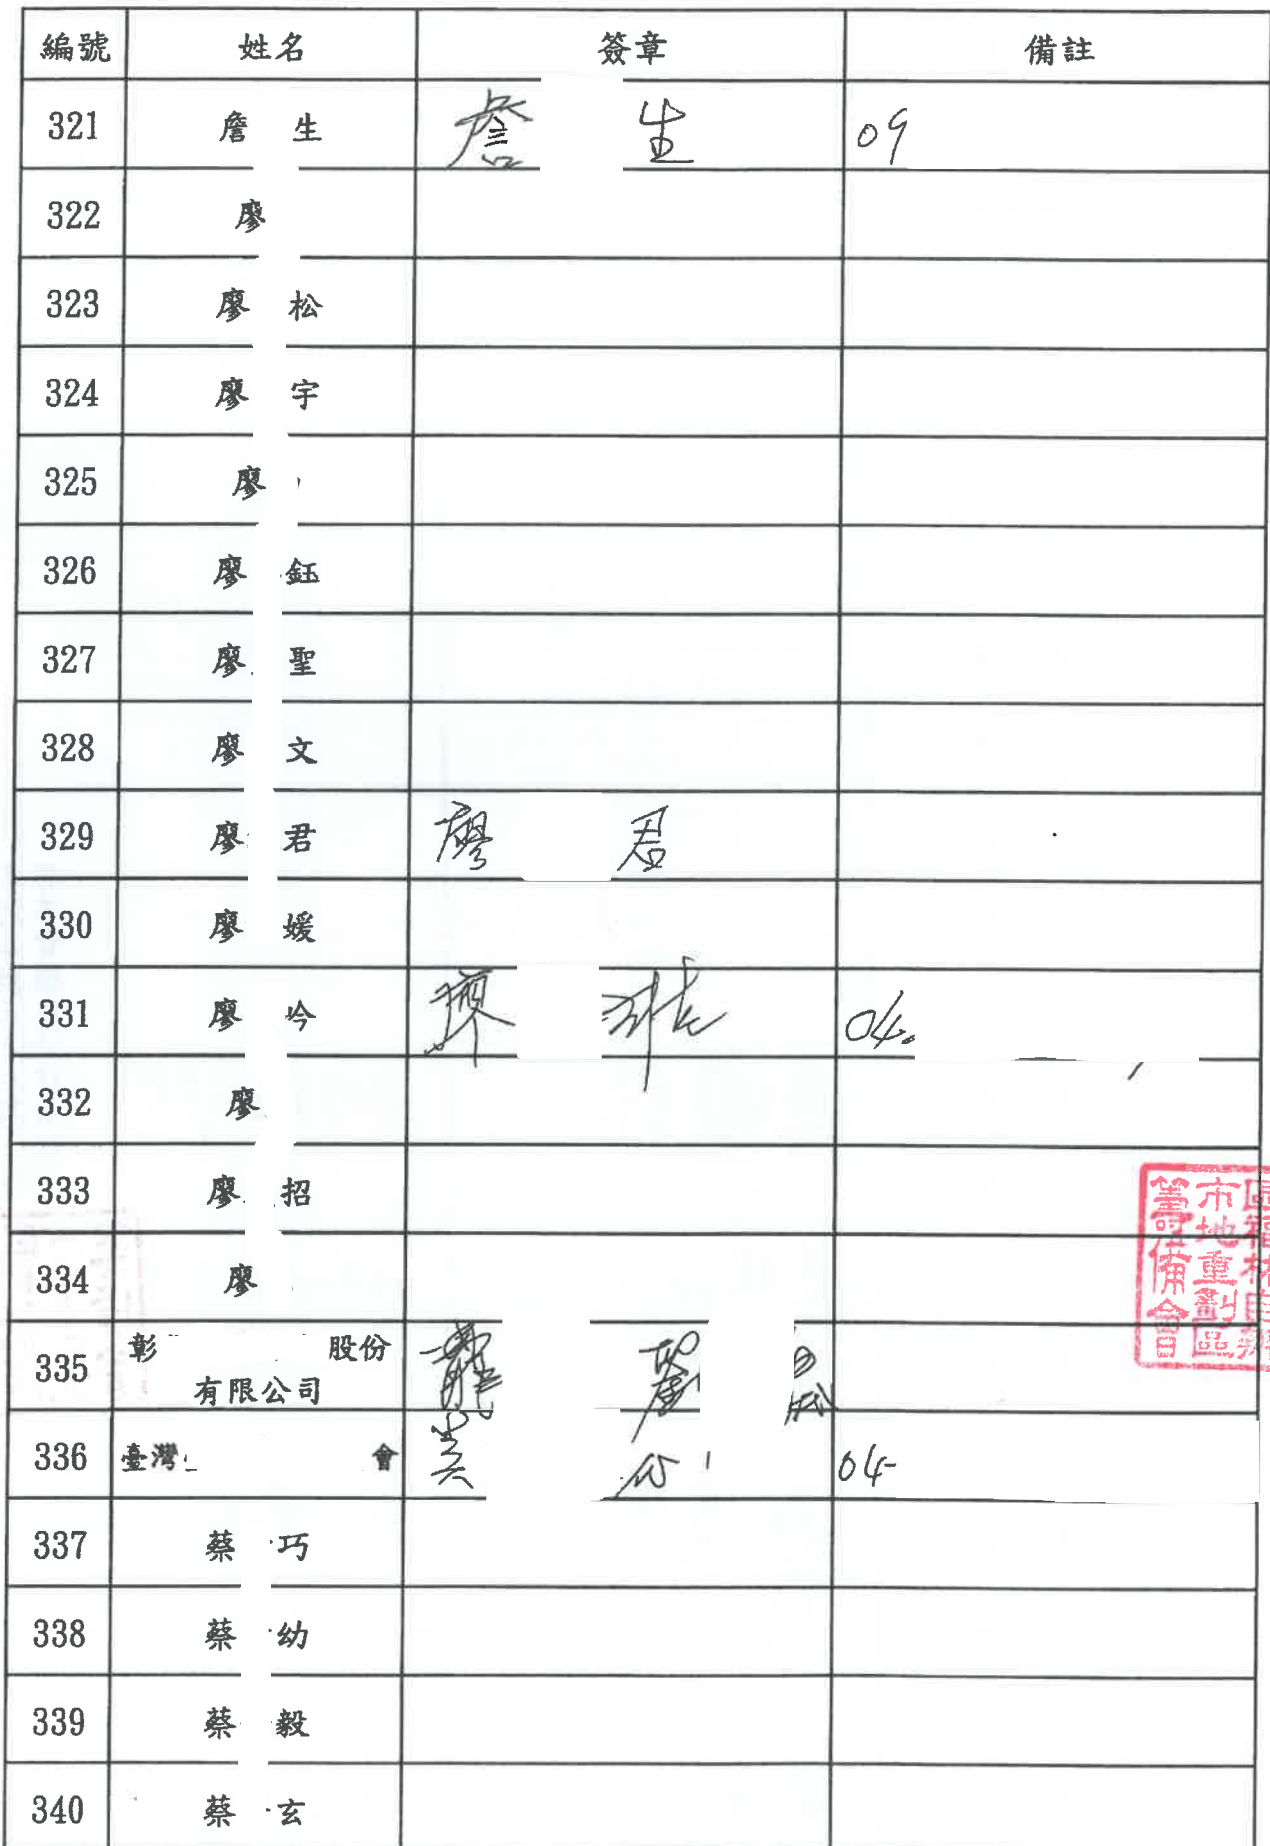 編號 姓名 簽章 備註
321 詹 生 詹 生 09
322 廖
323 廖 松
324 廖 宇
325 廖
326 廖 鈺
327 廖 聖
328 廖 文
329 廖 君 廖 君
330 廖 媛
331 廖 吟 廖 04
332 廖
333 廖 招
334 廖
335 彰 股份
有限公司
336 臺灣 會 04
337 蔡 巧
338 蔡 幼
339 蔡 毅
340 蔡 玄
市地重劃區
籌備會